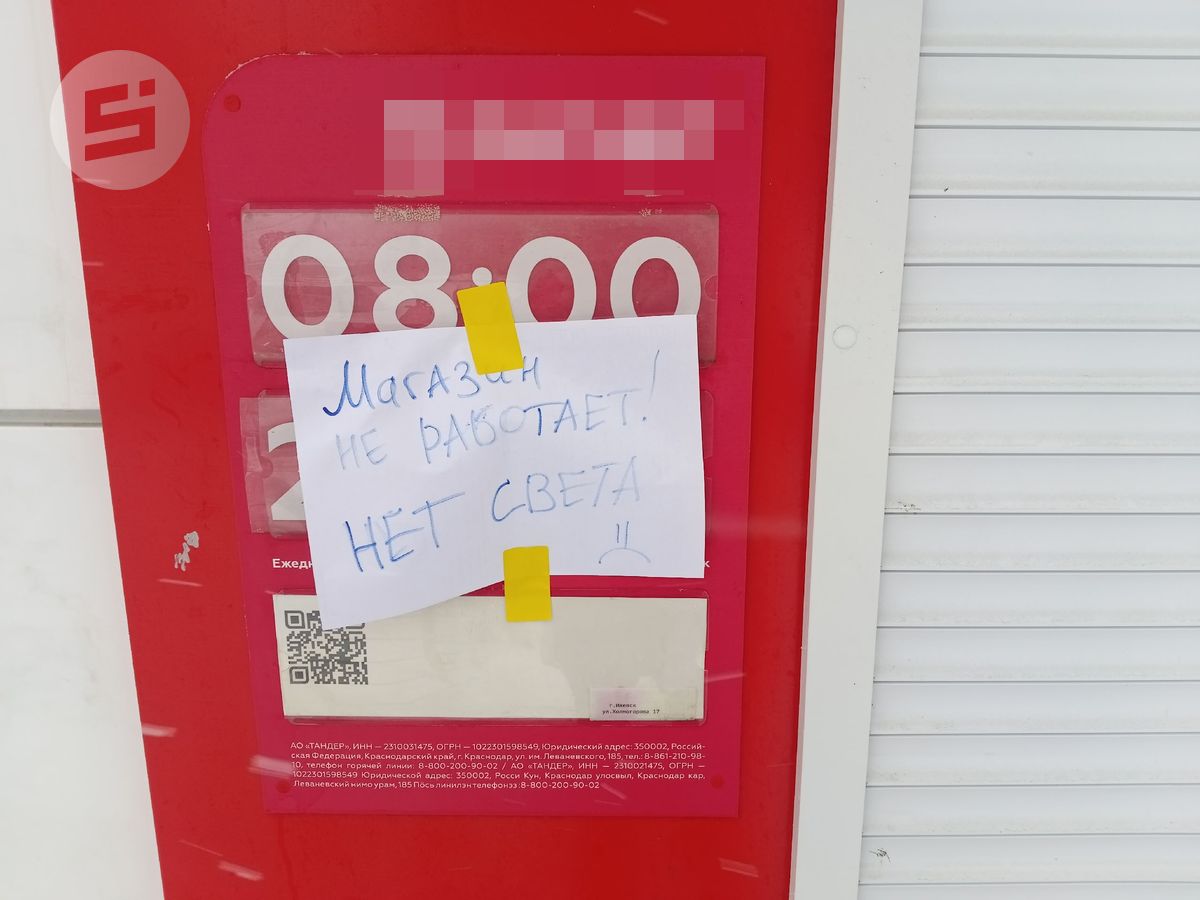 08:00
Магазин
НЕ РАБОТАЕТ!
НЕТ СВЕТА
2
Ежедн
к
г.Ижевск
ул.Холмогорова 17
АО «ТАНДЕР», ИНН — 2310031475, ОГРН — 1022301598549, Юридический адрес: 350002, Россий-
ская Федерация, Краснодарский край, г. Краснодар, ул. им. Леваневского, 185, тел.: 8-861-210-98-
10, телефон горячей линии: 8-800-200-90-02 / АО «ТАНДЕР», ИНН — 2310021475, ОГРН —
1022301598549 Юридической адрес: 350002, Росси Кун, Краснодар улосвыл, Краснодар кар,
Леваневский нимо урам, 185 Пось линилэн телефонэз:8-800-200-90-02